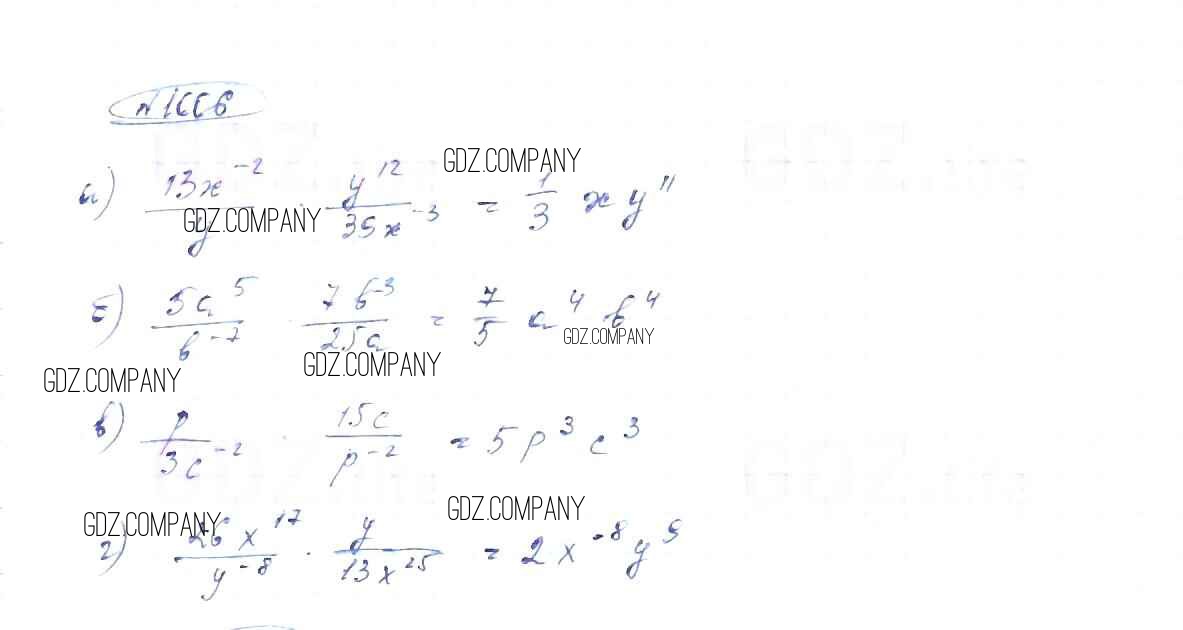 №1666
GDZ.COMPANY
а) 13x⁻²/y · y¹²/39x⁻³ = 1/3 x y¹¹
GDZ.COMPANY
б) 5a⁵/b⁻⁷ · 7b⁻³/25a = 7/5 a⁴ b⁴
GDZ.COMPANY
GDZ.COMPANY
GDZ.COMPANY
в) p/3c⁻² · 15c/p⁻² = 5p³c³
GDZ.COMPANY
GDZ.COMPANY
г) 26x¹⁷/y⁻⁸ · y/13x²⁵ = 2x⁻⁸y⁹